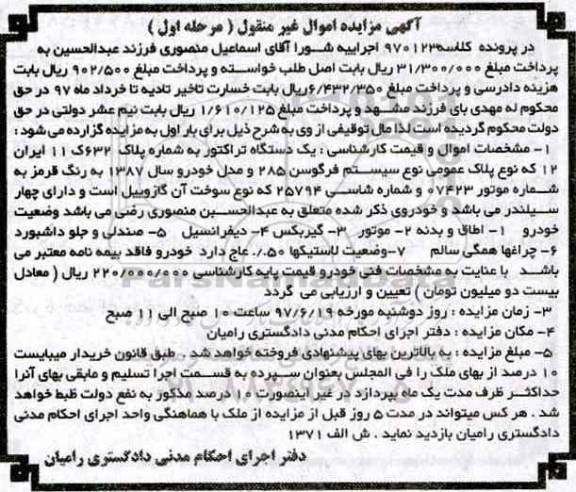 آگهی مزایده اموال غیر منقول ( مرحله اول )
در پرونده کلاسه ۹۷۰۱۲۳ اجراییه شورا آقای اسماعیل منصوری فرزند عبدالحسین به
پرداخت مبلغ ۳۱/۳۰۰/۰۰۰ ریال بابت اصل طلب خواسته و پرداخت مبلغ ۹۰۲/۵۰۰ ریال بابت
هزینه دادرسی و پرداخت مبلغ ۶/۴۳۲/۳۵۰ ریال بابت خسارت تاخیر تادیه تا خرداد ماه ۹۷ در حق
محکوم له مهدی بای فرزند مشهد و پرداخت مبلغ ۱/۶۱۰/۱۲۵ ریال بابت نیم عشر دولتی در حق
دولت محکوم گردیده است لذا مال توقیفی از وی به شرح ذیل برای بار اول به مزایده گزارده می شود :
۱- مشخصات اموال و قیمت کارشناسی : یک دستگاه تراکتور به شماره پلاک ۶۳۲ک ۱۱ ایران
۱۲ که نوع پلاک عمومی نوع سیستم فرگوسن ۲۸۵ و مدل خودرو سال ۱۳۸۷ به رنگ قرمز به
شماره موتور ۰۷۴۲۳ و شماره شاسی ۲۵۷۹۴ که نوع سوخت آن گازوییل است و دارای چهار
سیلندر می باشد و خودروی ذکر شده متعلق به عبدالحسین منصوری رضی می باشد وضعیت
خودرو ۱- اطاق و بدنه ۲- موتور ۳- گیربکس ۴- دیفرانسیل ۵- صندلی و جلو داشبورد
۶- چراغها همگی سالم ۷-وضعیت لاستیکها ۵۰٪ عاج دارد خودرو فاقد بیمه نامه معتبر می
باشد با عنایت به مشخصات فنی خودرو قیمت پایه کارشناسی ۲۲۰/۰۰۰/۰۰۰ ریال ( معادل
بیست دو میلیون تومان ) تعیین و ارزیابی می گردد
۳- زمان مزایده : روز دوشنبه مورخه ۹۷/۶/۱۹ ساعت ۱۰ صبح الی ۱۱ صبح
۴- مکان مزایده : دفتر اجرای احکام مدنی دادگستری رامیان
۵- مبلغ مزایده : به بالاترین بهای پیشنهادی فروخته خواهد شد . طبق قانون خریدار میبایست
۱۰ درصد از بهای ملک را فی المجلس بعنوان سپرده به قسمت اجرا تسلیم و مابقی بهای آنرا
حداکثر ظرف مدت یک ماه بپردازد در غیر اینصورت ۱۰ درصد مذکور به نفع دولت ظبط خواهد
شد . هر کس میتواند در مدت ۵ روز قبل از مزایده از ملک با هماهنگی واحد اجرای احکام مدنی
دادگستری رامیان بازدید نماید . ش الف ۱۳۷۱
دفتر اجرای احکام مدنی دادگستری رامیان